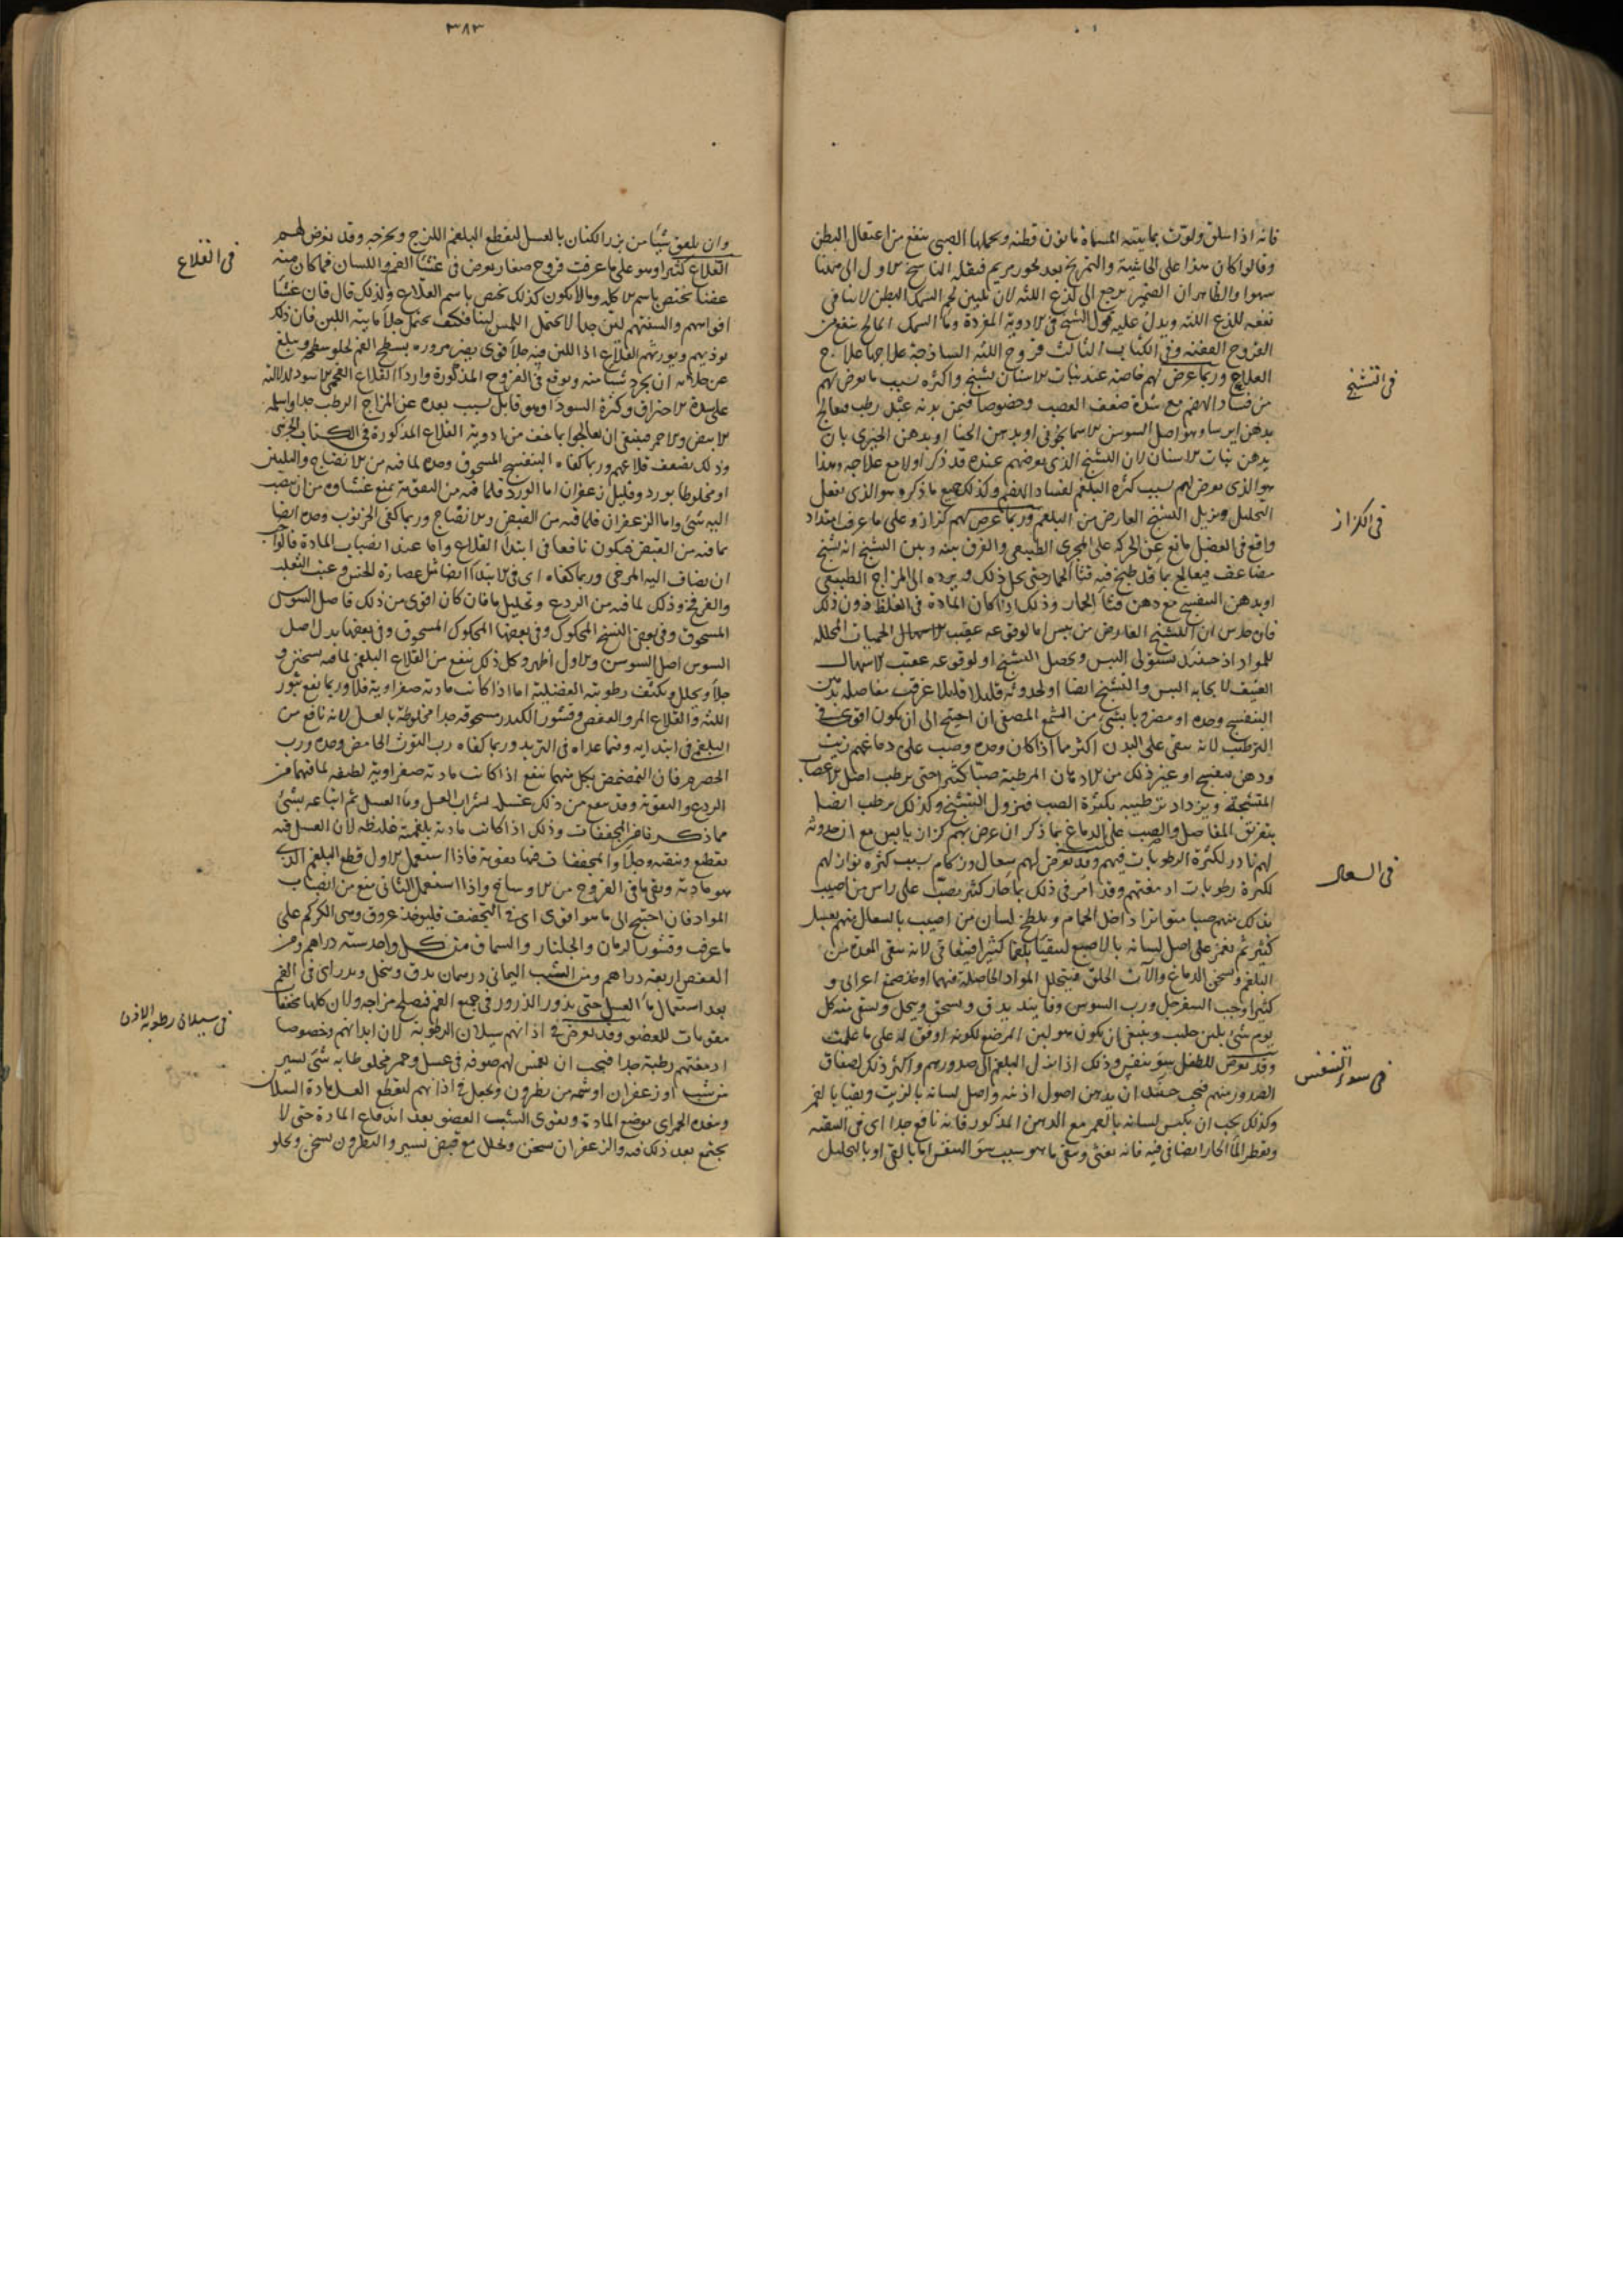 فانه اذا سلق ولوث بمائيته المسماة ماءون قطنه ويحملها الصبي ينفع من اعتقال البطن
وقالوا كان هذا على الحاشية والتمريخ بعد بخور مريم فنقله الناسخ من الاول الى ههنا
سهوا والظاهر ان الضمير يرجع الى لذع اللثه لان تليين لحم السمك البطن لا ينافي
نفعه للذع اللثه ويدل عليه قول الشيخ في الادوية المفردة وماء السمك المالح ينفع من
القروح العفنه وفي الكتاب الثالث قروح اللثه الساذجة علاجها علاج
القلاع وربما عرض لهم خاصة عند نبات الاسنان تشنج واكثره بسبب ما يعرض لهم
في التشنج
من فساد الهضم مع شدة ضعف العصب وخصوصا فيمن بدنه عبل رطب فيعالج
بدهن ايرسا وهو اصل السوسن الاسمانجوني او بدهن الحنا او بدهن الخيري بان
يدهن نبات الاسنان لان التشنج الذي يعرضهم عنده قد ذكر اولا مع علاجه وهذا
هو الذي يعرض لهم بسبب كثرة البلغم لفساد الهضم وكذلك جميع ما ذكر وهو الذي يفعل
التحليل ويزيل التشنج العارض من البلغم وربما عرض لهم كزاز وعلى ما عرف امتداد
في الكزاز
واقع في العضل مانع عن الحركة على المجرى الطبيعي والفرق بينه وبين التشنج انه تشنج
مضاعف فيعالج بماء قد طبخ فيه قثاء الحمار حتى يحل ذلك ويرده الى المزاج الطبيعي
او بدهن البنفسج مع دهن قثاء الحمار وذلك اذا كان المادة في الغلظ دون ذلك
فان حدس ان التشنج العارض من يبس اما لوقوعه عقيب الاسهال الحميات المحلله
للمواد اذ حينئذ يستولي اليبس ويحصل التشنج او لوقوعه عقيب الاسهال
العنيف لا يجابه اليبس والتشنج ايضا او لحدوثه قليلا قليلا عرقت مفاصله بدهن
البنفسج وحده او مضروبا بشيء من الشمع المصفى ان احتيج الى ان يكون اقوى في
الترطيب لانه يبقى على البدن اكثر مما اذا كان وحده وصب على دماغهم زيت
ودهن بنفسج او غير ذلك من الادهان المرطبة صبا كثيرا حتى يرطب اصل الاعصاب
المتشنجة ويزداد ترطيبه بكثرة الصب فيزول التشنج وكذلك يرطب ايضا
بتعريق المفاصل والصب على الدماغ بما ذكر ان عرض بهم كزاز يابس مع ان حدوثه
لهم نادر لكثرة الرطوبات فيهم وقد يعرض لهم سعال وزكام بسبب كثرة نوازلهم
في السعال
لكثرة رطوبات ادمغتهم وقد امر في ذلك بماء حار كثير يصب على راس من اصيب
بذلك منهم صبا متواترا داخل الحمام ويلطخ لسان من اصيب بالسعال منهم بعسل
كثير ثم يغمز على اصل لسانه بالاصبع ليتقيا بلغما كثيرا فيعافى لانه ينقى المعدة من
البلغم ويسخن الدماغ والآت الحلق فيتحلل المواد الحاصلة فيهما او يؤخذ صمغ اعرابي و
كثيرا وحب السفرجل ورب السوس وفانيذ يدق ويسحق وينخل ويسقى منه كل
يوم شيء بلبن حليب وينبغي ان يكون هو لبن المرضع لكونه اوفق له على ما علمت
وقد يعرض للطفل سوء تنفس وذلك اذا نزل البلغم الى صدورهم واكثر ذلك لضعاف
في سوء التنفس
الصدور منهم فيجب حينئذ ان يدهن اصول اذنيه واصل لسانه بالزيت ويتقيا بالغمز
وكذلك يجب ان يكبس لسانه بالغمز مع الدهن المذكور فانه نافع جدا اي في التنقيه
ويقطر الماء الحار ايضا في فيه فانه يغثي وينقي ما هو سبب سوء التنفس اما بالقي او بالتحليل
٣٨٣
وان يلعق شيئا من بزر الكتان بالعسل ليقطع البلغم اللزج ويخرجه وقد يعرض لهم
في القلاع
القلاع كثيرا وهو على ما عرفت قروح صغار يعرض في غشاء الفم واللسان فما كان منه
عفنا يختص باسم الاكله وما لا يكون كذلك يختص باسم القلاع ولذلك قال فان غشاء
افواههم والسنتهم لين جدا لا يحتمل اللمس لينا فكيف يحتمل جلاء مائية اللبن فان ذلك
يوذيهم ويورثهم القلاع اذا اللبن فيه جلاء قوي يضر مروره بسطح الفم لجلو سطحه ويبلغ
من جلائه ان يجرد شيئا منه ويوقع في القروح المذكورة واردا القلاع الفحمي الاسود لدلالته
على شدة الاحتراق وكثرة السودا وهو قاتل بسبب بعده عن المزاج الرطب جدا واسلمه
الابيض والاحمر فينبغي ان يعالجوا بما خف من ادوية القلاع المذكورة في الكتاب الجزئي
وذلك لضعف قلاعهم وربما كفاه البنفسج المسحوق وحده لما فيه من الانضاج والتليين
او مخلوطا بورد وقليل زعفران اما الورد فلما فيه من التقوية يمنع غشاوه من ان ينصب
اليه شيء واما الزعفران فلما فيه من القبض والانضاج وربما كفى الخرنوب وحده ايضا
بما فيه من القبض فيكون نافعا في ابتداء القلاع واما عند انصباب المادة قالوا يجب
ان يضاف اليه المرخي وربما كفاه اي في الابتداء ايضا مثل عصارة الخس وعنب الثعلب
والفرفخ وذلك لما فيه من الردع وتحليل ما فان كان اقوى من ذلك فاصل السوس
المسحوق وفي بعض النسخ المحكوك وفي بعضها المحكوك المسحوق وفي بعضها بدل اصل
السوس اصل السوسن والاول اظهر وكل ذلك ينفع من القلاع البلغمي لما فيه تسخين و
جلاء ويحلل ويكثف رطوبته الفضلية اما اذا كانت مادته صفراوية فلا وربما نفع بثور
اللثه والقلاع المر والعفص وقشور الكندر مسحوقة جدا مخلوطة بالعسل لانه نافع من
البلغمي في ابتدايه وفيما عداه في التزيد وربما كفاه رب التوث الحامض وحده ورب
الحصرم فان التمضمض بكل منهما ينفع اذا كانت مادته صفراوية لطيفه لما فيهما من
الردع والتقوية وقد ينفع من ذلك غسله بشراب العسل وماء العسل ثم اتباعه بشيء
مما ذكرنا من المجففات وذلك اذا كانت مادته بلغمية غليظه لان العسل فيه
تقطيع وتنقيه وجلاء والمجففات فيها تقوية فاذا استعمل الاول قطع البلغم الذي
هو مادته ونقى ما في القروح من الاوساخ واذا استعمل الثاني منع من انصباب
المواد فان احتيج الى ما هو اقوى اي في التجفيف فليؤخذ عروق وهي الكركم على
ما عرف وقشور الرمان والجلنار والسماق من كل واحد سته دراهم ومن
العفص اربعة دراهم ومن الشب اليماني درهمان يدق وينخل ويذر اي في الفم
بعد استعمال ماء العسل حتى يدور الذرور في جميع الفم فيصلح مزاجه ولان كلها مجففات
مقويات للعضو وقد يعرض في اذانهم سيلان الرطوبة لان ابدانهم وخصوصا
في سيلان رطوبة الاذن
ادمغتهم رطبة جدا فيجب ان يغمس لهم صوفه في عسل وخمر مخلوطا به شيء يسير
من شب او زعفران او شمه من نطرون ويجعل في اذانهم ليقطع العسل مادة السيلان
وينفذه الخمر اي موضع المادة ويقوي الشب العضو بعد اندفاع المادة حتى لا
يجتمع بعد ذلك فيه والزعفران يسخن ويحلل مع قبض يسير والنطرون يسخن ويجلو